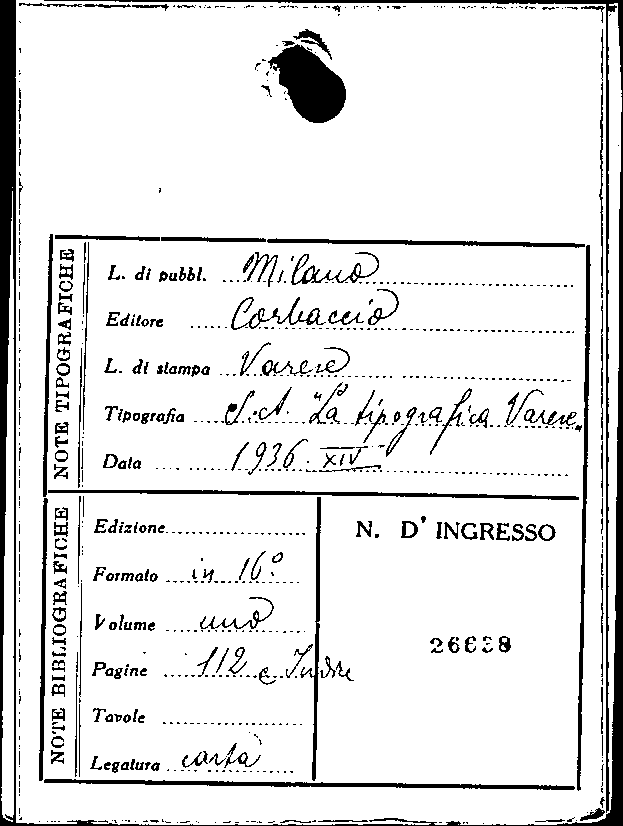 NOTE TIPOGRAFICHE
L. di pubbl. Milano
Editore Corbaccio
L. di stampa Varese
Tipografia S.A. "La tipografica Varese"
Data 1936 XIV
NOTE BIBLIOGRAFICHE
Edizione
Formato in 16º
Volume uno
Pagine 112 e Indice
Tavole
Legatura carta
N. D' INGRESSO